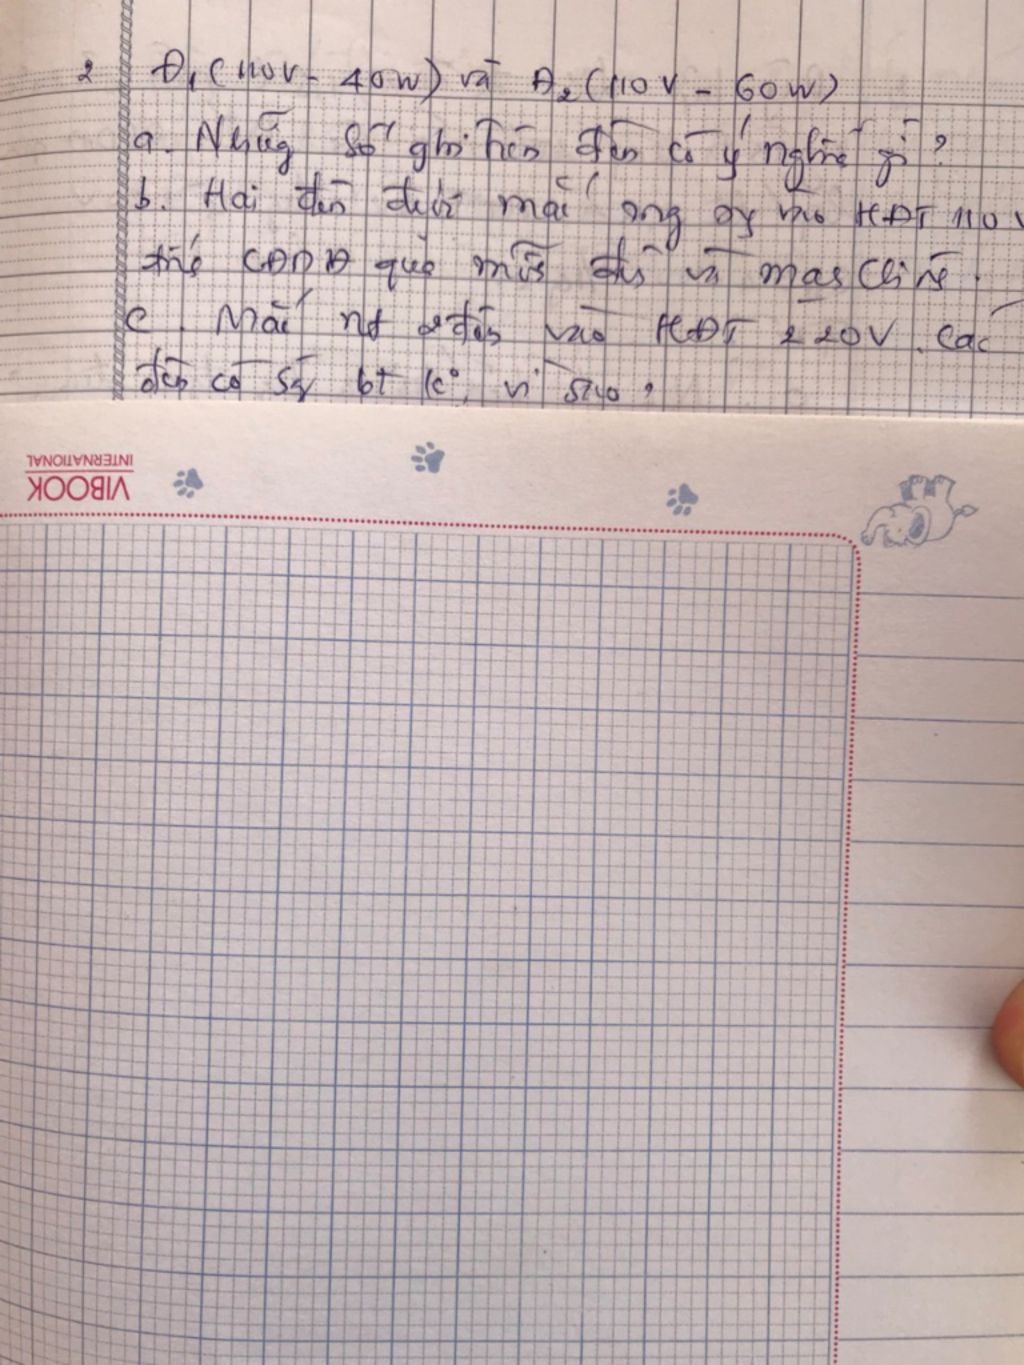 2 Đ₁(110V - 40W) và Đ₂(110V - 60W)
a. Những Số ghi trên đèn có ý nghĩa gì?
b. Hai đèn được mắc song vào HĐT 110V
CĐDĐ qua mỗi đèn và mạch
c. Mắc nt 2 đèn vào HĐT 220V. Các
đèn có sáng bt k°, vì sao?
VIBOOK
INTERNATIONAL